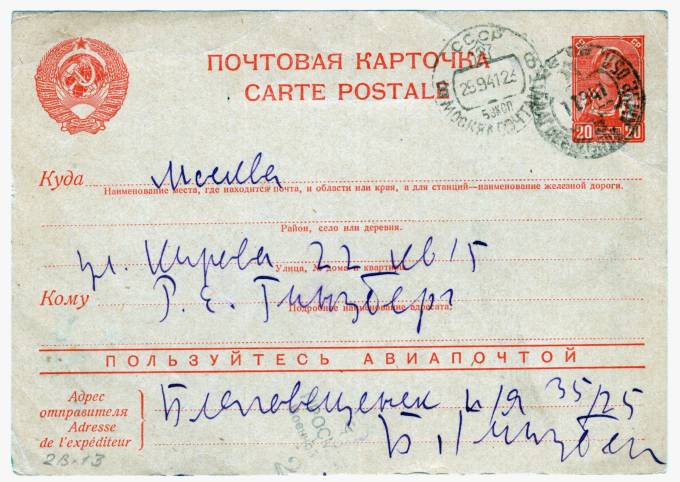 ПОЧТОВАЯ КАРТОЧКА
CARTE POSTALE
СССР
25941 23
МОСКВА
20 20
Куда Москва
Наименование места, где находится почта, и области или края, а для станций—наименование железной дороги.
Район, село или деревня.
ул. Кирова 22 кв 15
Улица, № дома и квартиры.
Кому Р. Е. Гинзберг
Подробное наименование адресата.
ПОЛЬЗУЙТЕСЬ АВИАПОЧТОЙ
Адрес
отправителя
Adresse
de l'expéditeur
Благовещенск п/я 35/25
Б. Гинзбег